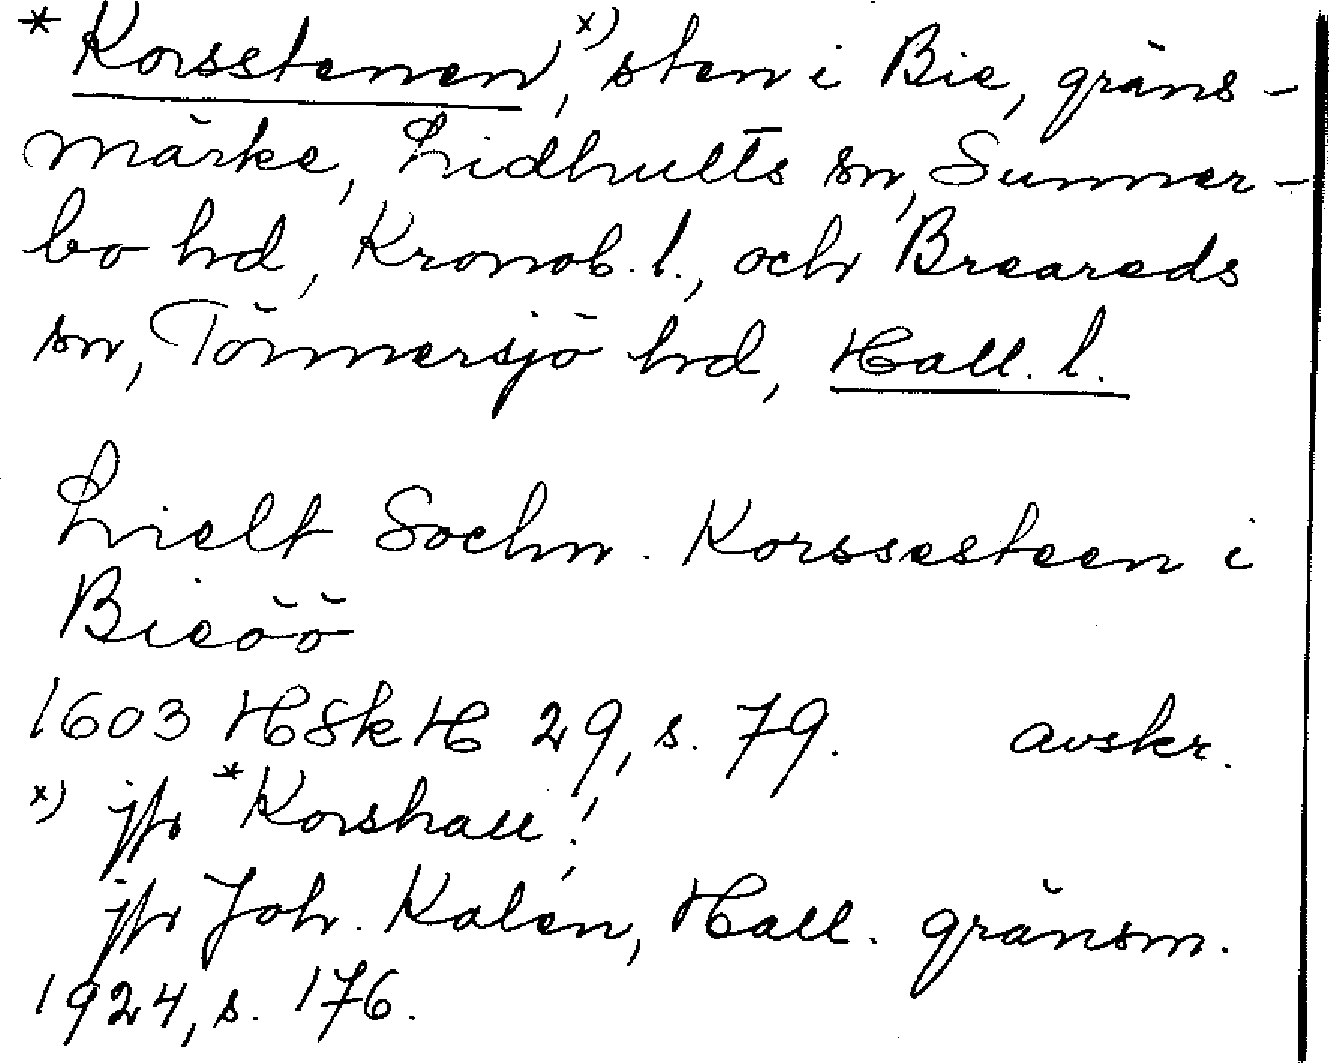 * Korsstenen, x) sten i Bie, gräns-
märke, Lidhults sn, Sunner-
bo hd, Kronob. l., och Breareds
sn, Tönnersjö hd, Hall. l.
Lielt Sochn. Korssesteen i
Bieöö
1603 HSkH 29, s. 79. avskr.
x) jfr *Korshall!
jfr Joh. Kalén, Hall. gränsm.
1924, s. 176.